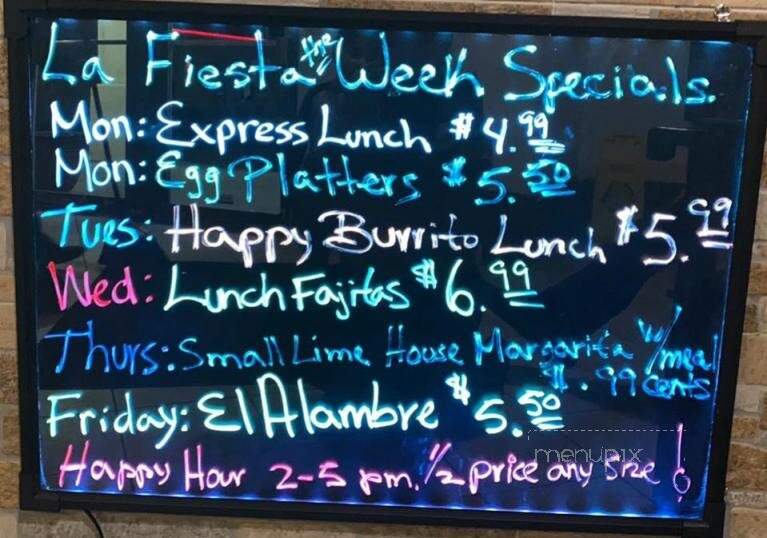 La Fiesta the Week Specials.
Mon: Express Lunch $4.99
Mon: Egg Platters $5.50
Tues: Happy Burrito Lunch $5.99
Wed: Lunch Fajitas $6.99
Thurs: Small Lime House Margarita w/meal
$.99 cents
Friday: El Alambre $5.50
Happy Hour 2-5 pm. 1/2 price any Size!
menupix